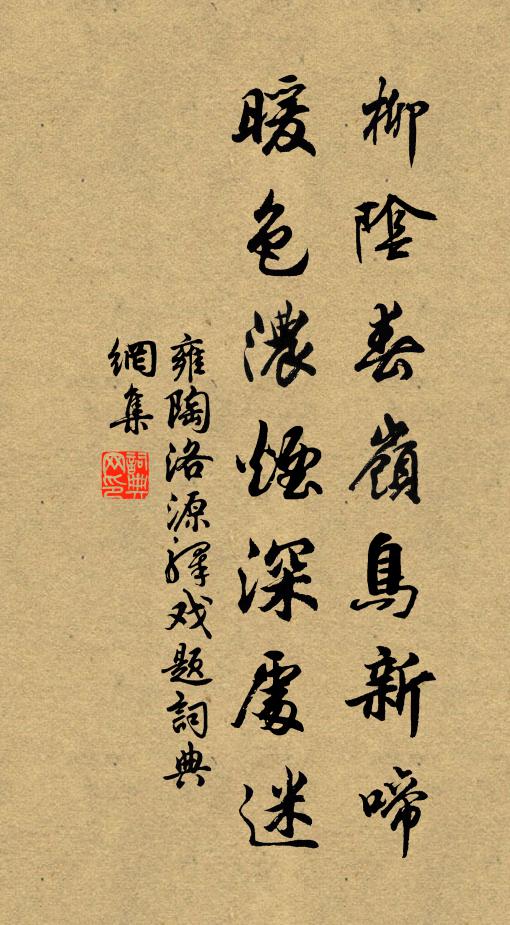 柳陰春嶺鳥新啼
暖色濃煙深處迷
雍陶洛源驛戏題詞典
網集
詞典
网印